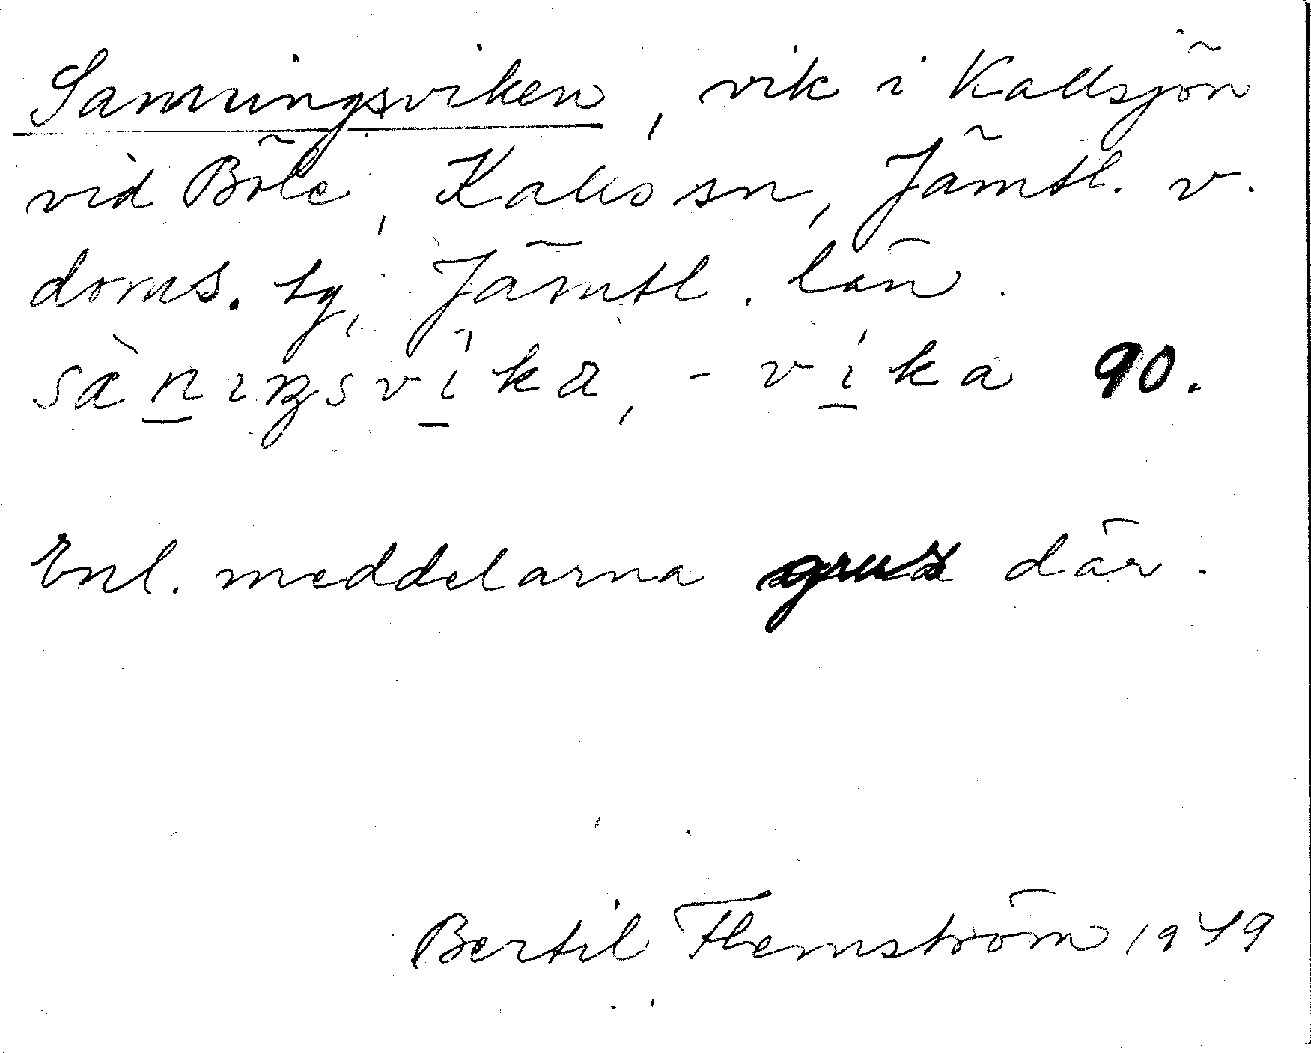 Sanningsviken, vik i Kallsjön
vid Böle, Kalls sn, Jämtl. v.
doms. tg, Jämtl. län.
sàn̲ıŋsví̲ka, -ví̲ka 90.
Enl. meddelarna grus där.
Bertil Flemström 1949